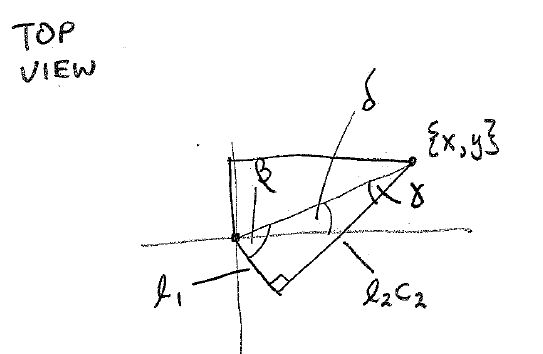 TOP
VIEW
δ
{x,y}
β
γ
l₁
l₂c₂